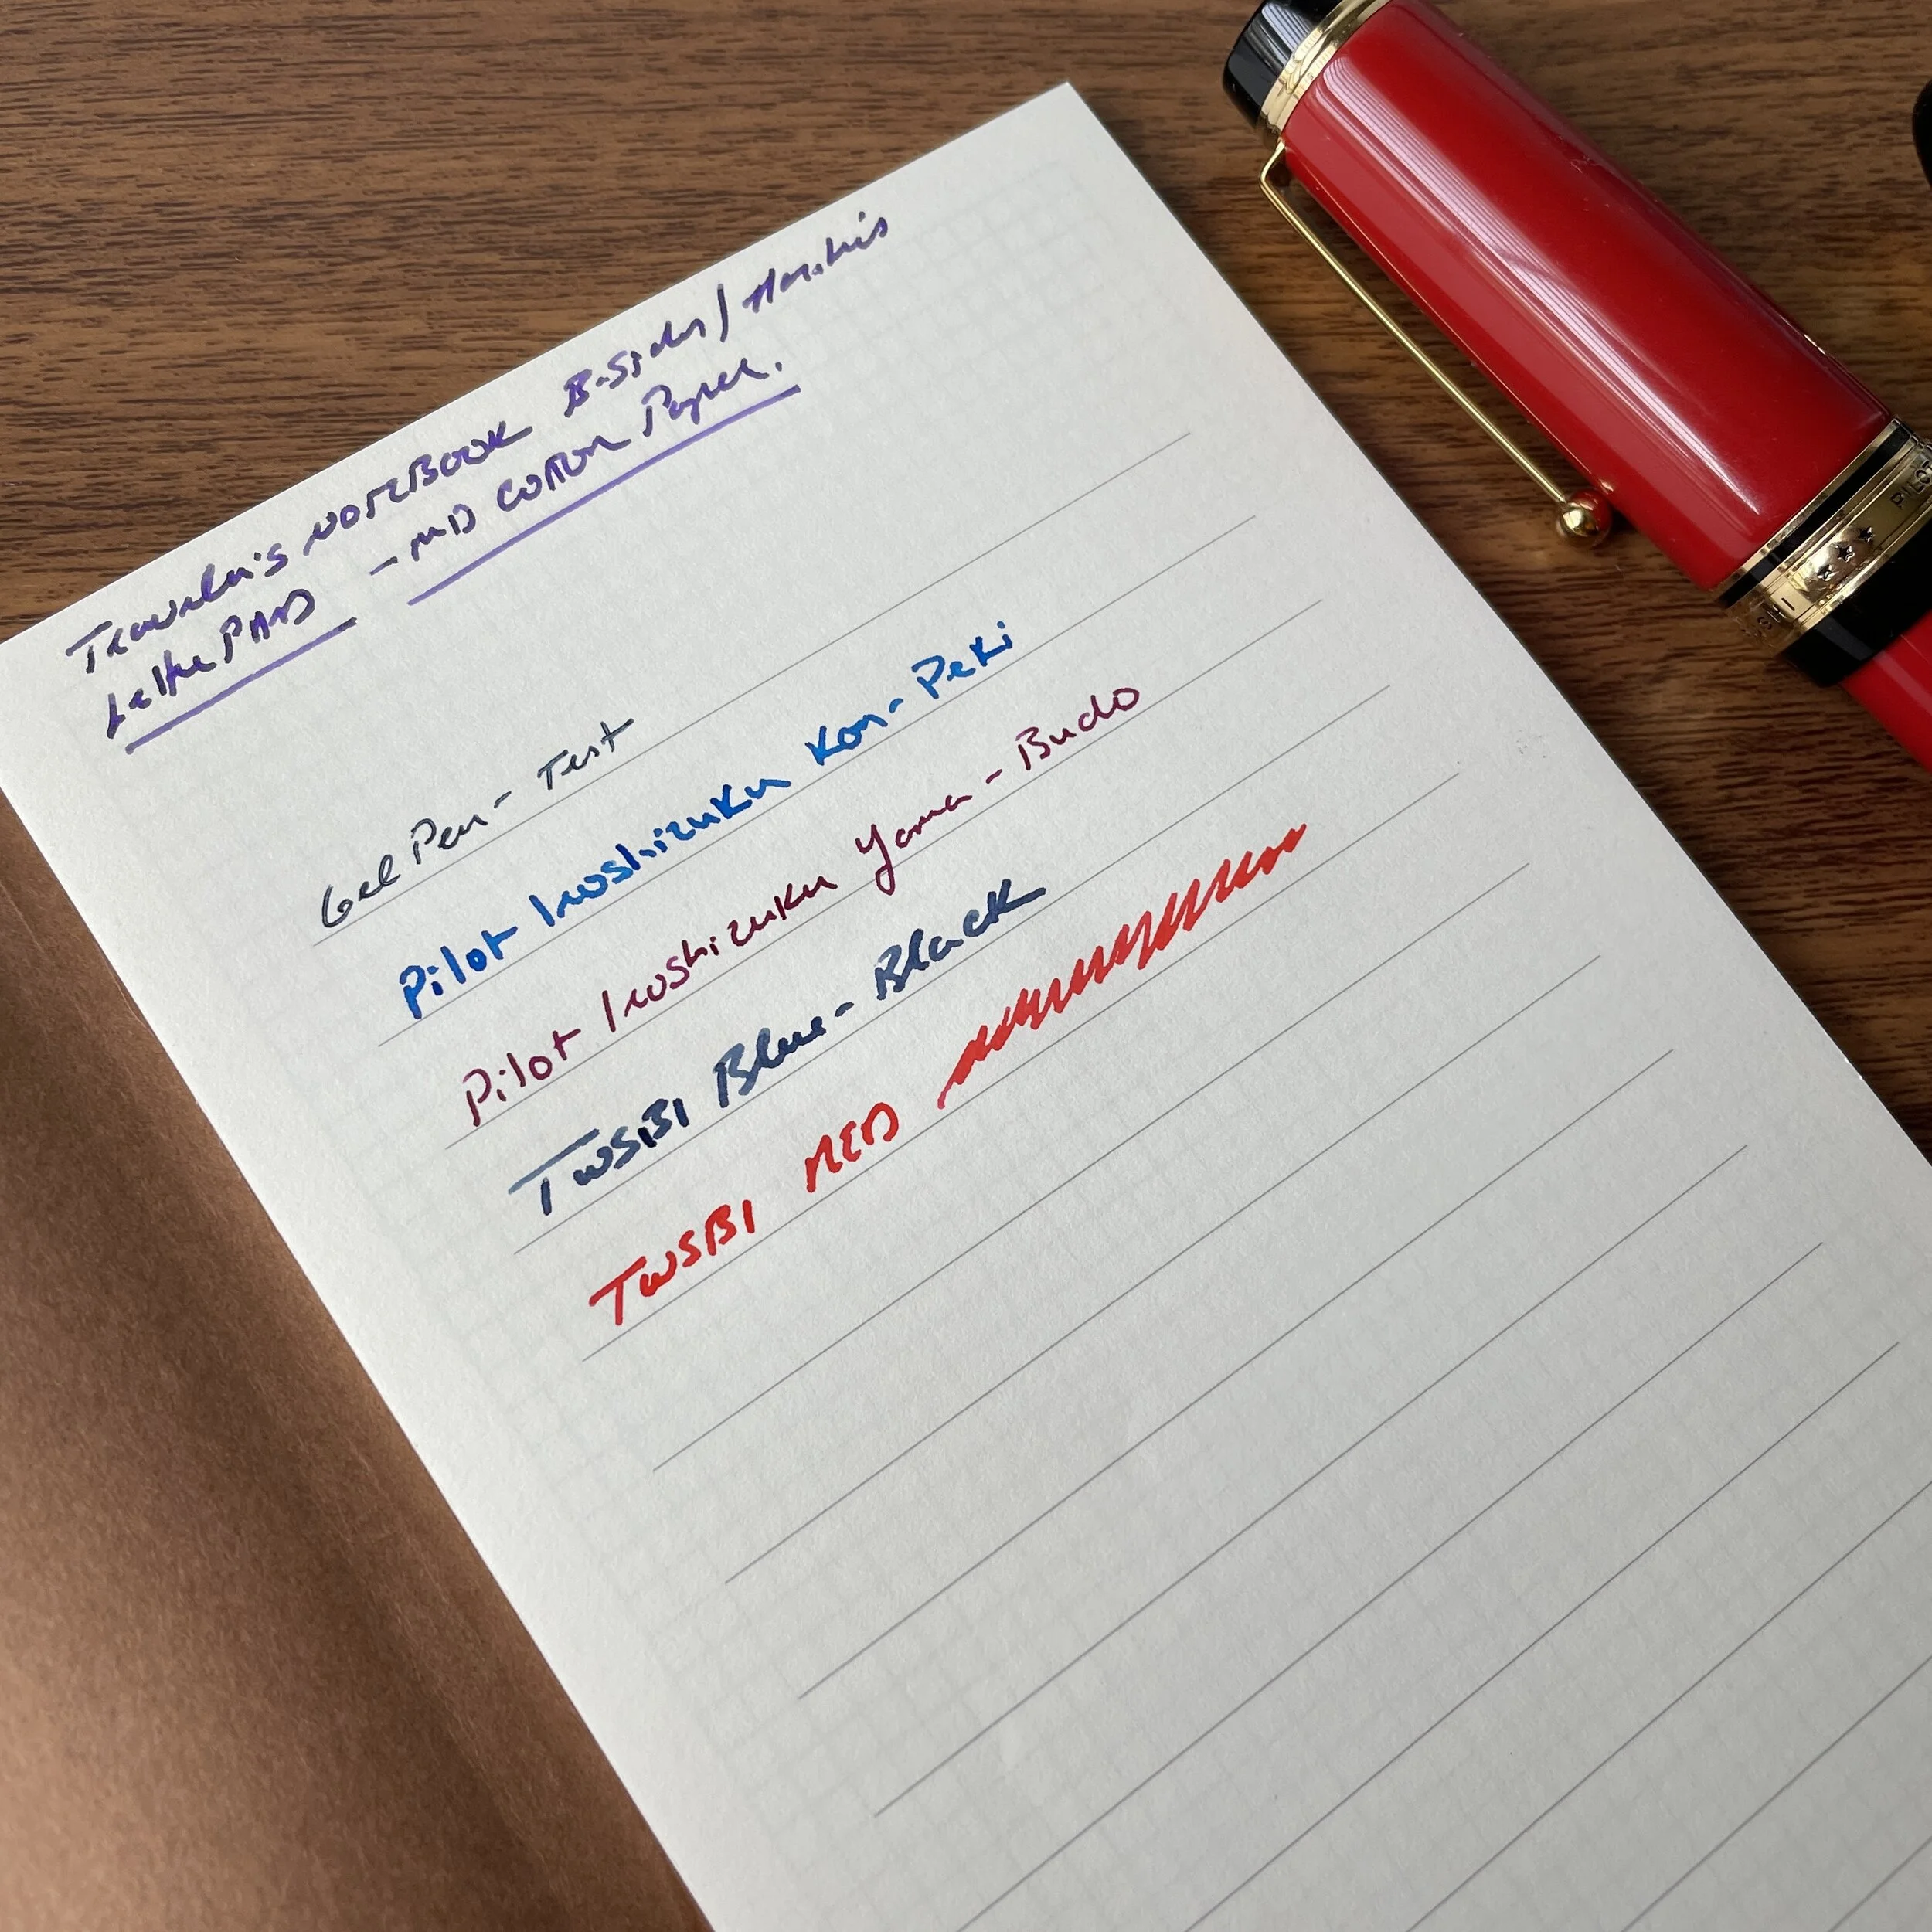 Traveler's NOTEBOOK B-Sides/
Letter PAD - MD Cotton Paper.
Gel Pen - Test
Pilot Iroshizuku Kon-Peki
Pilot Iroshizuku Yama-Budo
TWSBI Blue-Black
TWSBI RED
PILOT